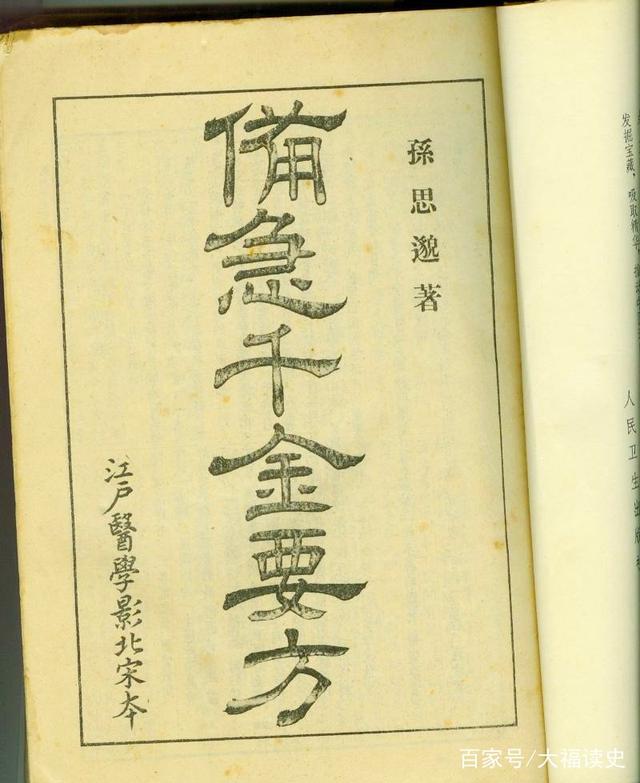 孫思邈著
備急千金要方
江戶醫學影北宋本
发掘宝藏，吸取精
人民卫生出版社
百家号/大福读史